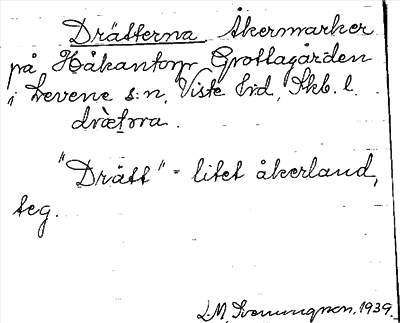 Drätterna Åkermarker
på Håkantorp Grottagården
i Levene s:n, Viste hrd, Skb. l.
drætɔra.
"Drätt" = litet åkerland,
teg.
L.M. Svenungsson, 1939.